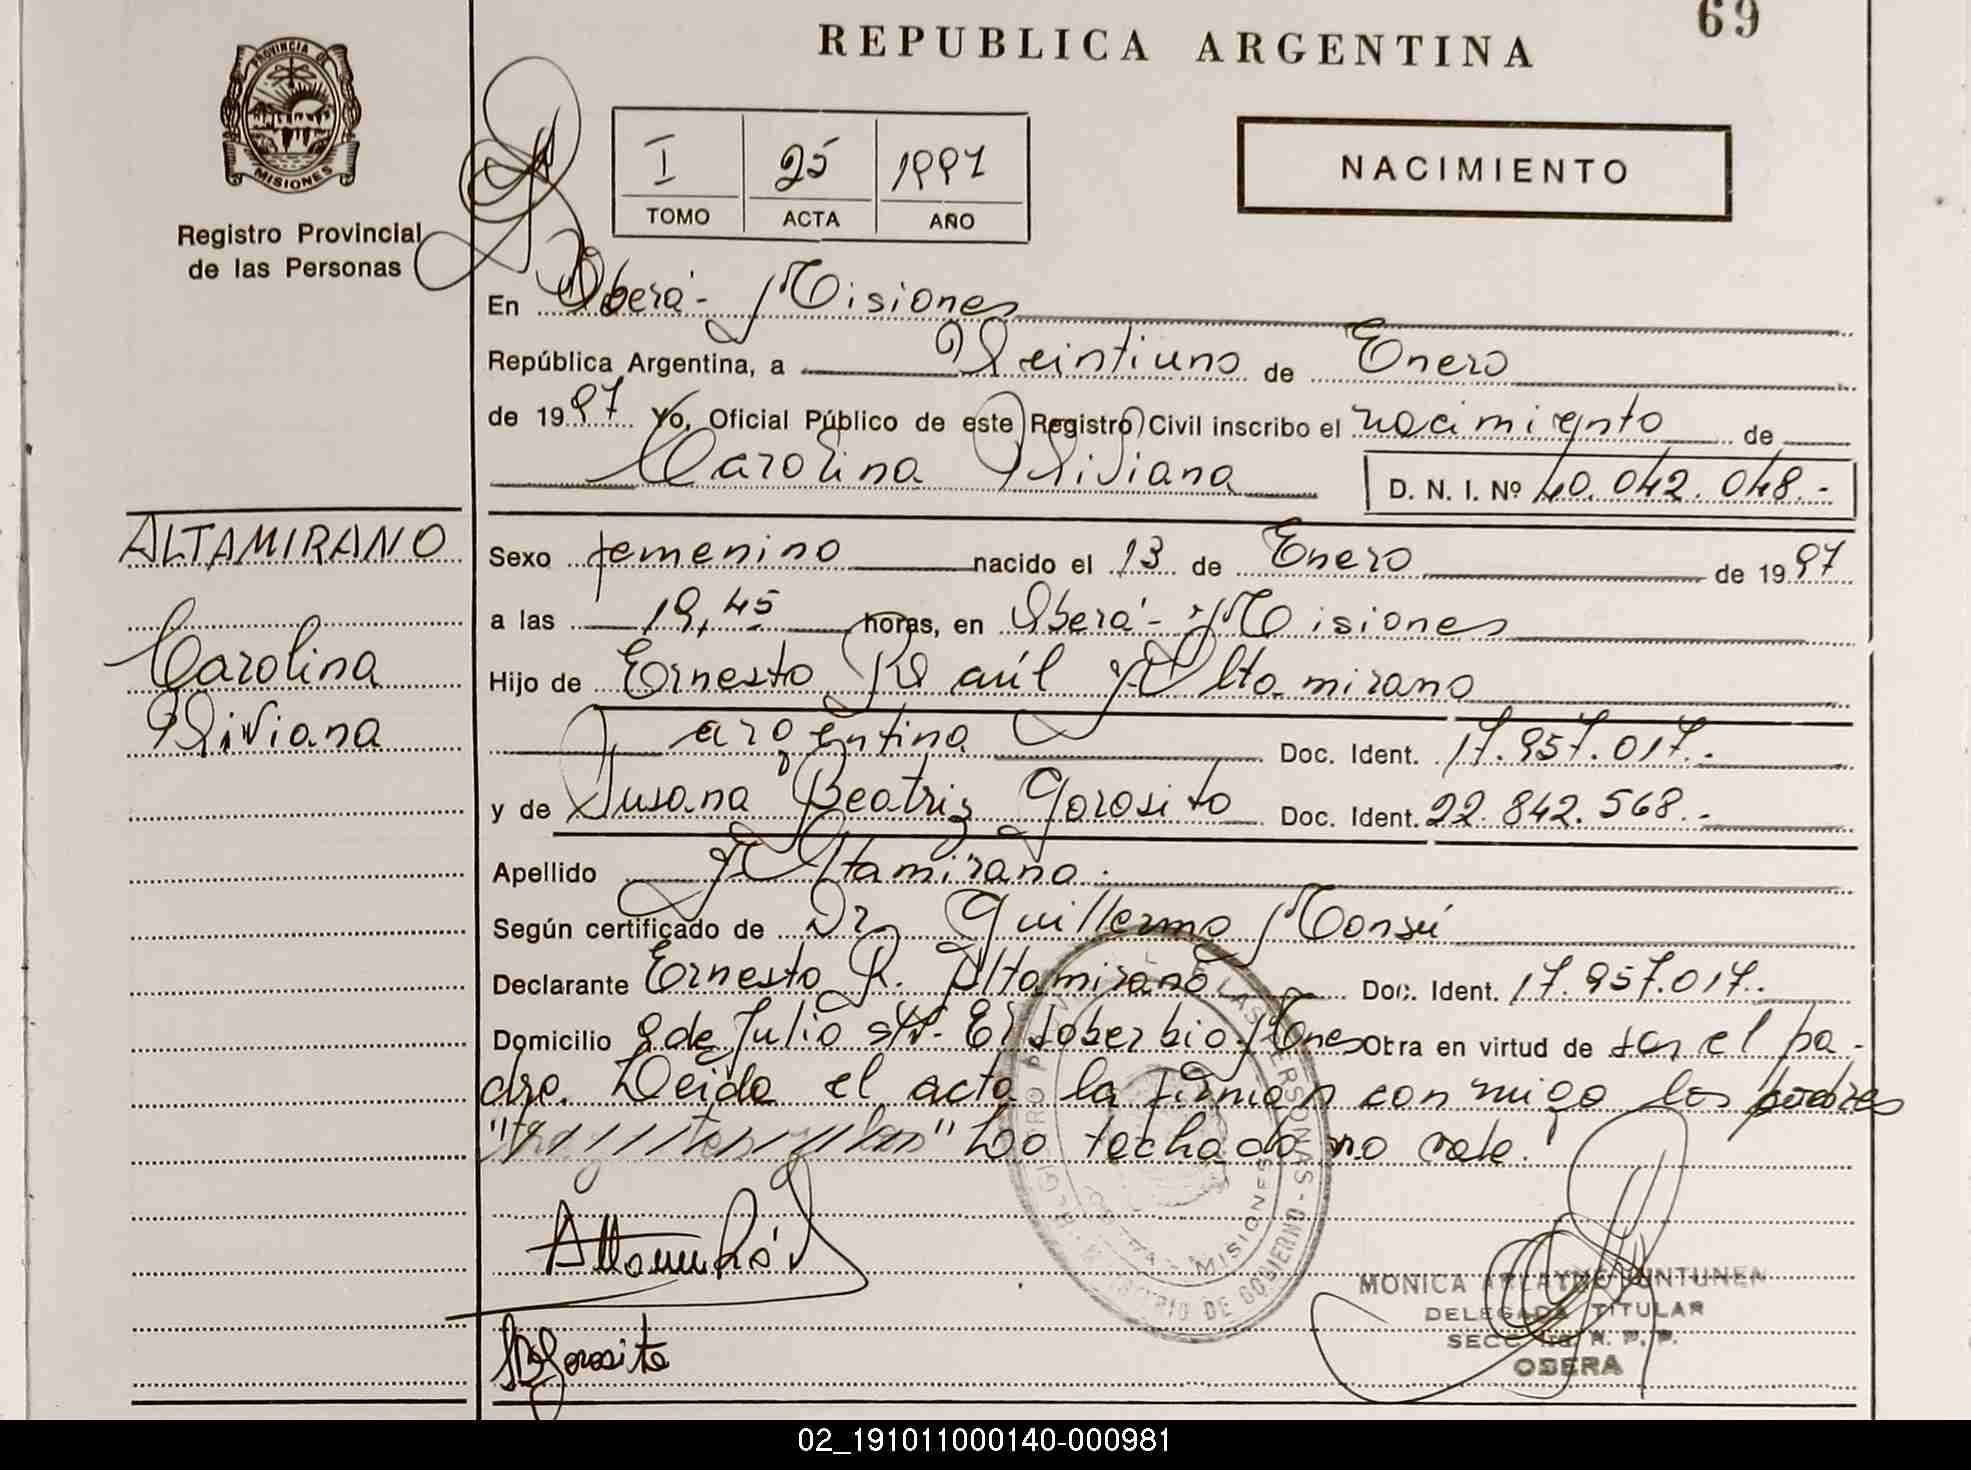 69
REPUBLICA ARGENTINA
PROVINCIA DE
MISIONES
Registro Provincial
de las Personas
I 25 1997
TOMO ACTA AÑO
NACIMIENTO
En Oberá - Misiones
República Argentina, a Veintiuno de Enero
de 1997 Yo, Oficial Público de este Registro Civil inscribo el nacimiento de
Carolina Viviana D. N. I. Nº 40.042.048.-
ALTAMIRANO
Carolina
Viviana
Sexo femenino nacido el 13 de Enero de 1997
a las 19,45 horas, en Oberá - Misiones
Hijo de Ernesto Raúl Altamirano
argentina Doc. Ident. 17.957.017.-
y de Susana Beatriz Gorosito Doc. Ident. 22.842.568.-
Apellido Altamirano.
Según certificado de Dr Guillermo Monsú
Declarante Ernesto R. Altamirano Doc. Ident. 17.957.017.
Domicilio 9 de Julio s/n- El Soberbio Mnes Obra en virtud de ser el pa-
dre. Leida el acta la firman conmigo los padres
" " Lo techado no vale.
MISIONES
MONICA
DELEGADA TITULAR
OBERA
Gorosito
02_191011000140-000981